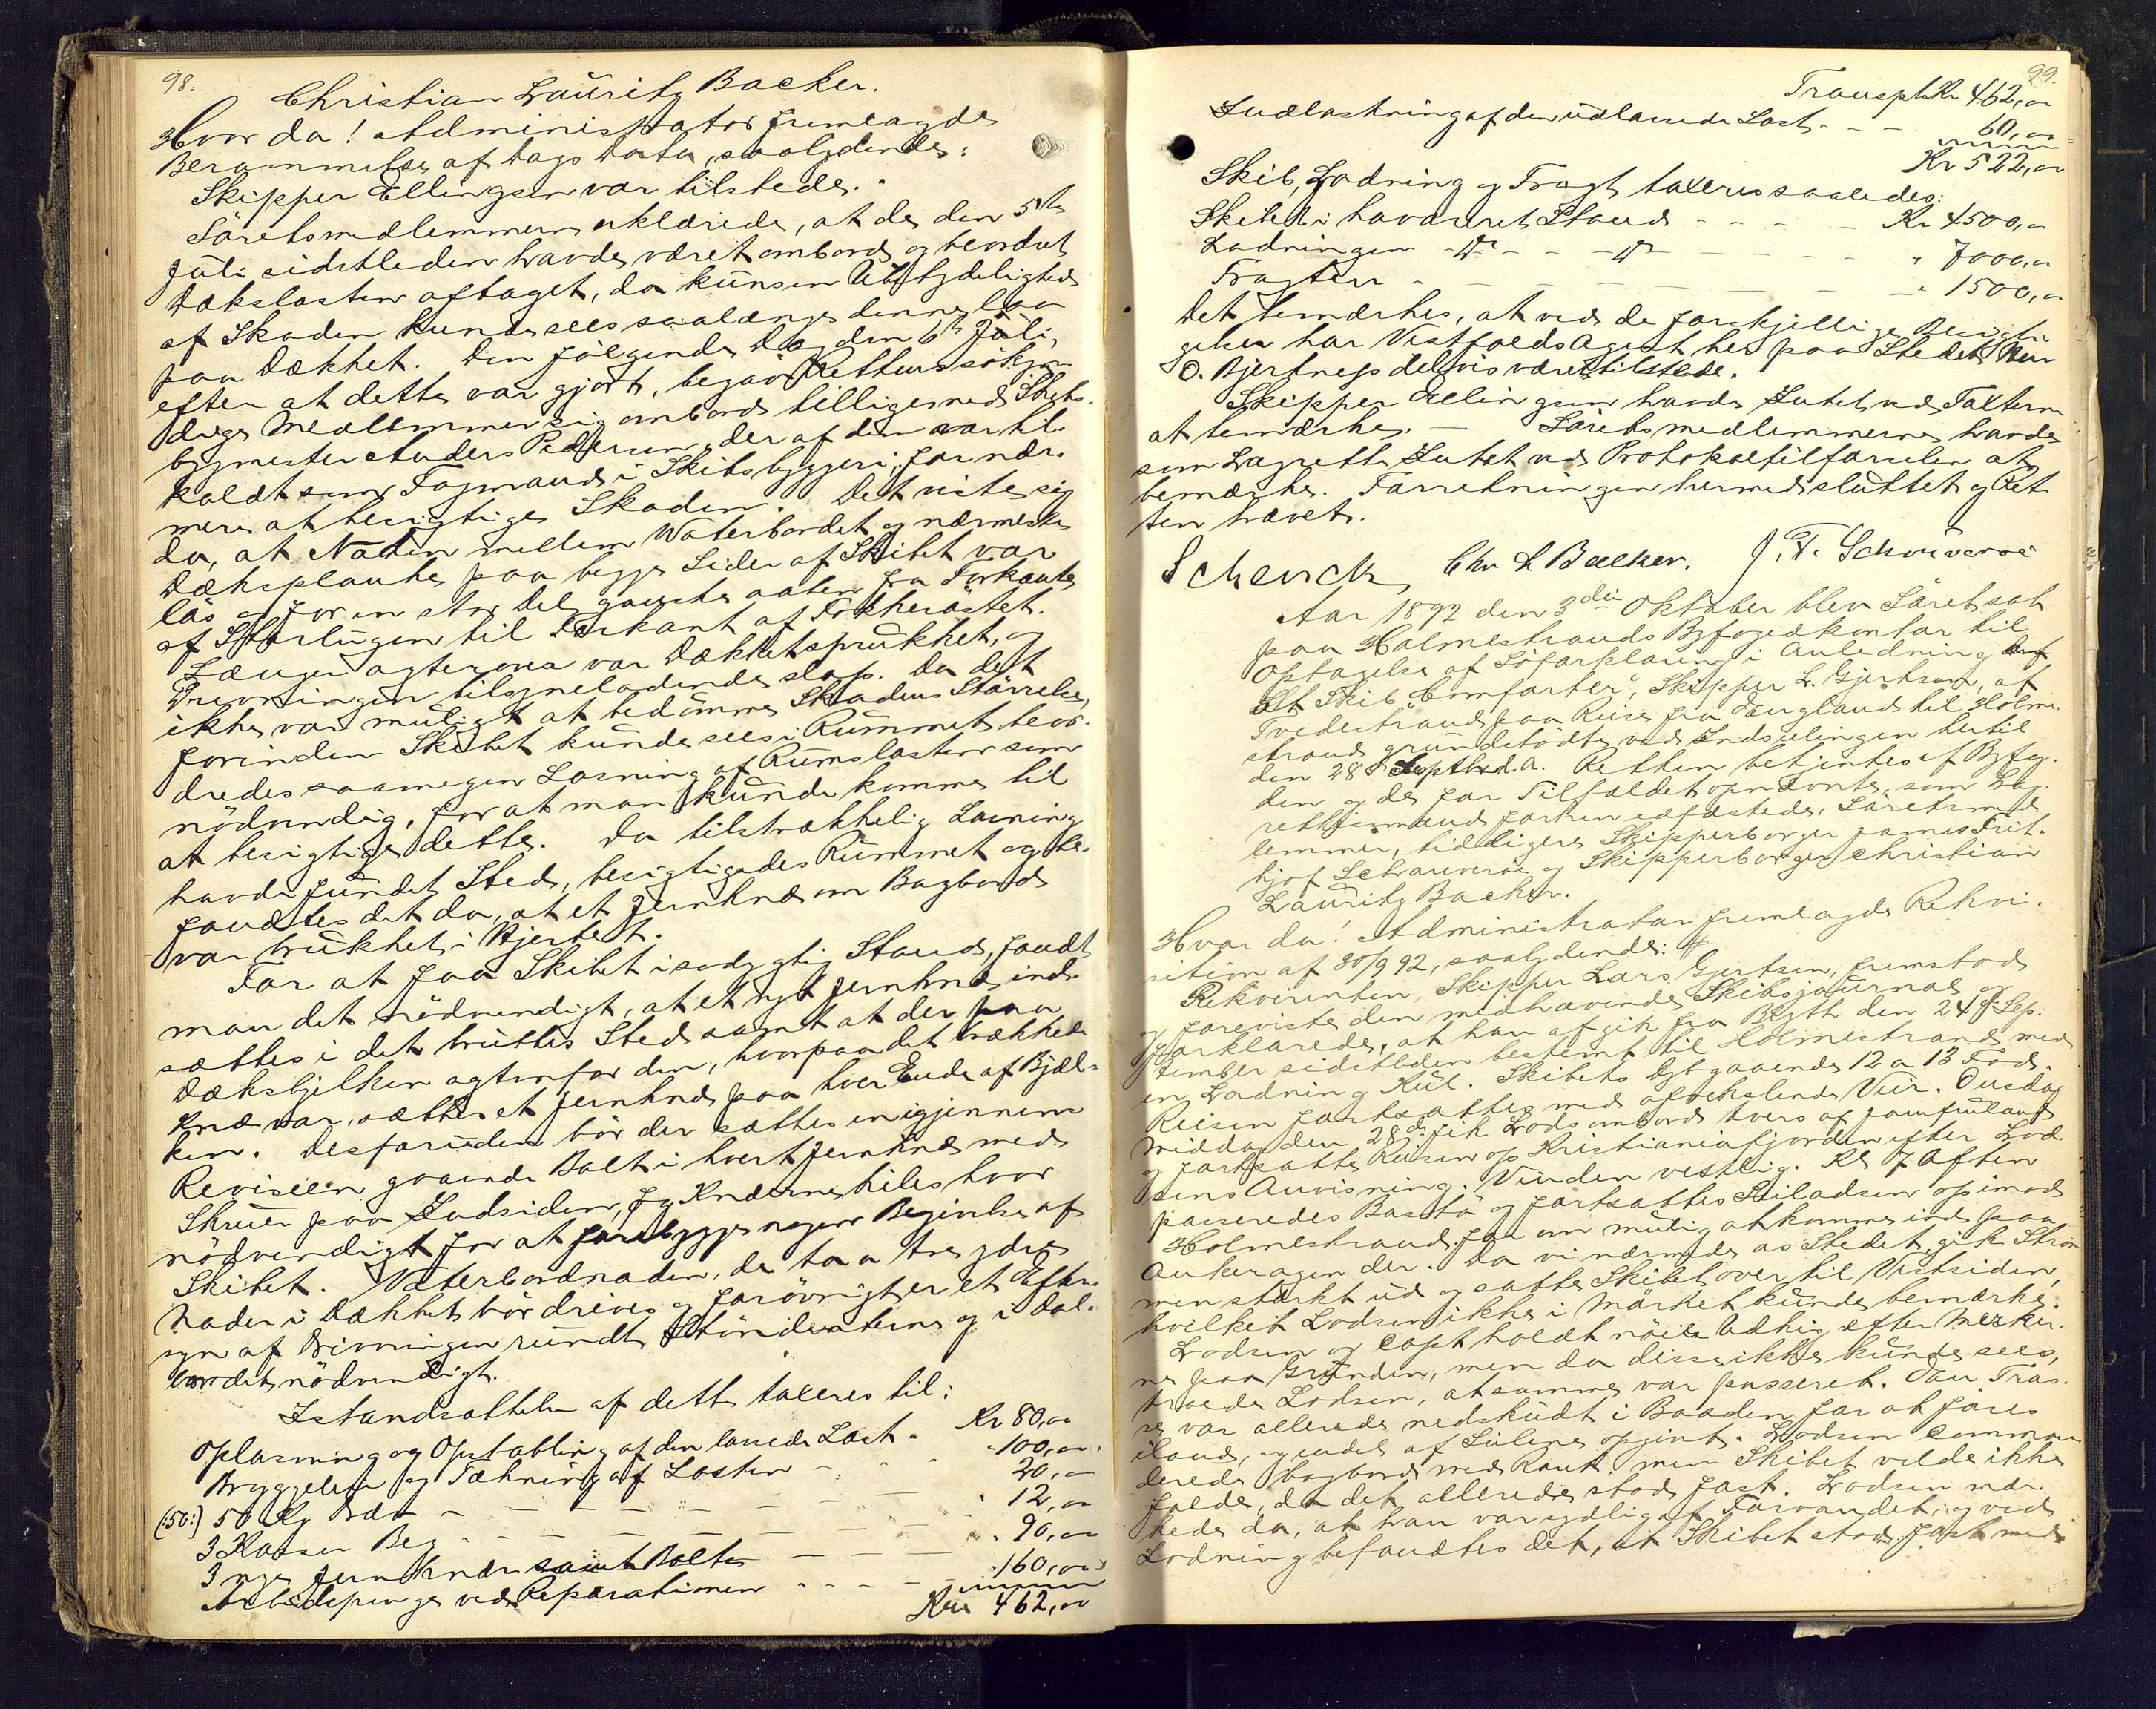 98.
Christian Lauritz Backer.
Hvor da! Administrator fremlagde
Berammelse af Dags Dato, saalydende:
Skipper Ellingsen var tilstede.
Söretsmedlemmerne erklærede, at de den 5te
Juli sidstleden havde været ombord og beordret
Dækslasten aftaget, da kun en Ubetydelighed
af Skaden kunde sees saalænge denne laa
paa Dækket. Den følgende Dag den 6te Juli,
efter at dette var gjort, begav Rettens sökyn-
dige Medlemmer sig ombord tilligemed Skibs-
bygmester Anders Pedersen, der af dem var til-
kaldt som Fagmand i Skibsbyggeri, for nær-
mere at besigtige Skaden. Det viste sig
da, at Naden mellem Waterbordet og nærmeste
Dæksplanke paa begge Sider af Skibet var
lös og for en stor Del ganske aaben fra Forkant
af Storlugen til Forkant af Fokkeröstet.
Længer agterover var Dækket sprukket, og
Drevningen tilsyneladende slap. Da det
ikke var muligt at bedömme Skadens Störrelse,
forinden Skibet kunde sees i Rummet, beor-
dredes saamegen Losning af Rumslasten som
nödvendig, for at man kunde komme til
at besigtige dette. Da tilstrækkelig Losning
havde fundet Sted, besigtigedes Rummet og be-
fandtes det da, at et Jernknæ om Bagbord
var brukket i Hjertet.
For at faa Skibet i sødygtig Stand, fandt
man det nödvendigt, at et nyt Jernknæ ind-
sættes i det bruttes Sted samt at der paa
Dæksbjelken agtenfor den, hvorpaa det brækkede
Knæ var, sættes et Jernknæ paa hver Ende af Bjæl-
ken. Desforuden bör der sættes en igjennem
Reviseen gaaende Bolt i hvert Jernknæ med
Skruer paa Indsiden, og Knæerne kiles hvor
nödvendigt for at forebygge nogen Begivelse af
Skibet. Waterbordnaden, de to a tre ydre
Nader i Dækket bör drives og forövrigt er et Efter-
syn af Drivningen rundt Stönderterne og i Dæk-
bordet nödvendigt.
Istandsættelsen af dette taxeres til:
Oplosning og Opstabling af den lossede Last - Kr 80,00
Bryggeleie og Tækning af Lasten - - - " 100,00
(:50:) 50 Kg Drev - - - - 20,00
3 Kasser Beg - - - - " 12,00
3 nye Jernknær samt Bolte - - - " 90,00
Arbeidspenge ved Reparationen - - - - " 160,00
Kr 462,00
99.
Transpt. Kr 462,00
Indlastning af den udlossede Last - - 60,00
Kr 522,00
Skib, Ladning og Fragt taxeres saaledes:
Skibet i havareret Stand - - - Kr 4500,00
Ladningen - do - - do - - - - " 7000,00
Fragten - - - - - - " 1500,00
Det bemærkes, at ved de forskjellige Besigti-
gelser har Vestfolds Agent her paa Stedet Herr
O. Bjertnes delvis været tilstede.
Skipper Ellingsen havde Intet ved Taxterne
at bemærke. - Söretsmedlemmerne havde
som Lagrette Intet ved Protokoltilførselen at
bemærke. Forretningen hermed sluttet og Ret-
ten hævet.
Schenck Chr L Backer. J. F. Schouwerøe
Aar 1892 den 3die Oktober blev Söret sat
paa Holmestrands Byfogedkontor til
Optagelse af Söforklaring i Anledning af
at Skib "Comforter", Skipper L. Gjertsen, af
Tvedestrand paa Reise fra England til Holme-
strand grundstödte ved Indseilingen hertil
den 28d Septbr d.A. Retten betjentes af Byfog-
den og de for Tilfældet opnævnte, som Lag-
rettesmænd forhen edfæstede, Söretsmed-
lemmer, tidligere Skipperborger James Frit-
hjof Schouwerøe og Skipperborger Christian
Lauritz Backer.
Hvor da! Administrator fremlagde Rekvi-
sition af 30/9 92, saalydende:
Rekvirenten, Skipper Lars Gjertsen, fremstod
og foreviste den medhavende Skibsjournal og
forklarede, at han afgik fra Blyth den 24d Sep-
tember sidstleden bestemt til Holmestrand med
en Ladning Kul. Skibets Dybgaaende 12 a 13 Fod.
Reisen fortsattes med afvekslende Veir. Onsdag
Middag den 28d fik Lods ombord tvers af Jomfruland
og fortsatte Reisen op Kristianiafjorden efter Lod-
sens Anvisning. Vinden vestlig. Kl 7 Aften
passeredes Bastö og fortsattes Seiladsen op imod
Holmestrand, for om mulig at komme ind paa
Ankeragen der. Da vi nærmede os Stedet, gik Ström-
men stærkt ud og satte Skibet over til Vestsiden,
hvilket Lodsen ikke i Mörket kunde bemærke.
Lodsen og Capt holdt nöie Udkig efter Merker-
ne paa Grunden, men da disse ikke kunde sees,
troede Lodsen, at samme var passeret. Een Tros-
se var allerede nedskudt i Baaden for at föres
iland, og endel af Seilene opgivet. Lodsen comman-
derede bagbord med Roret, men Skibet vilde ikke
falde, da det allerede stod fast. Lodsen mær-
kede da, at han var ydligst Farvandet, og ved
Lodning befandtes det, at Skibet stod fast med